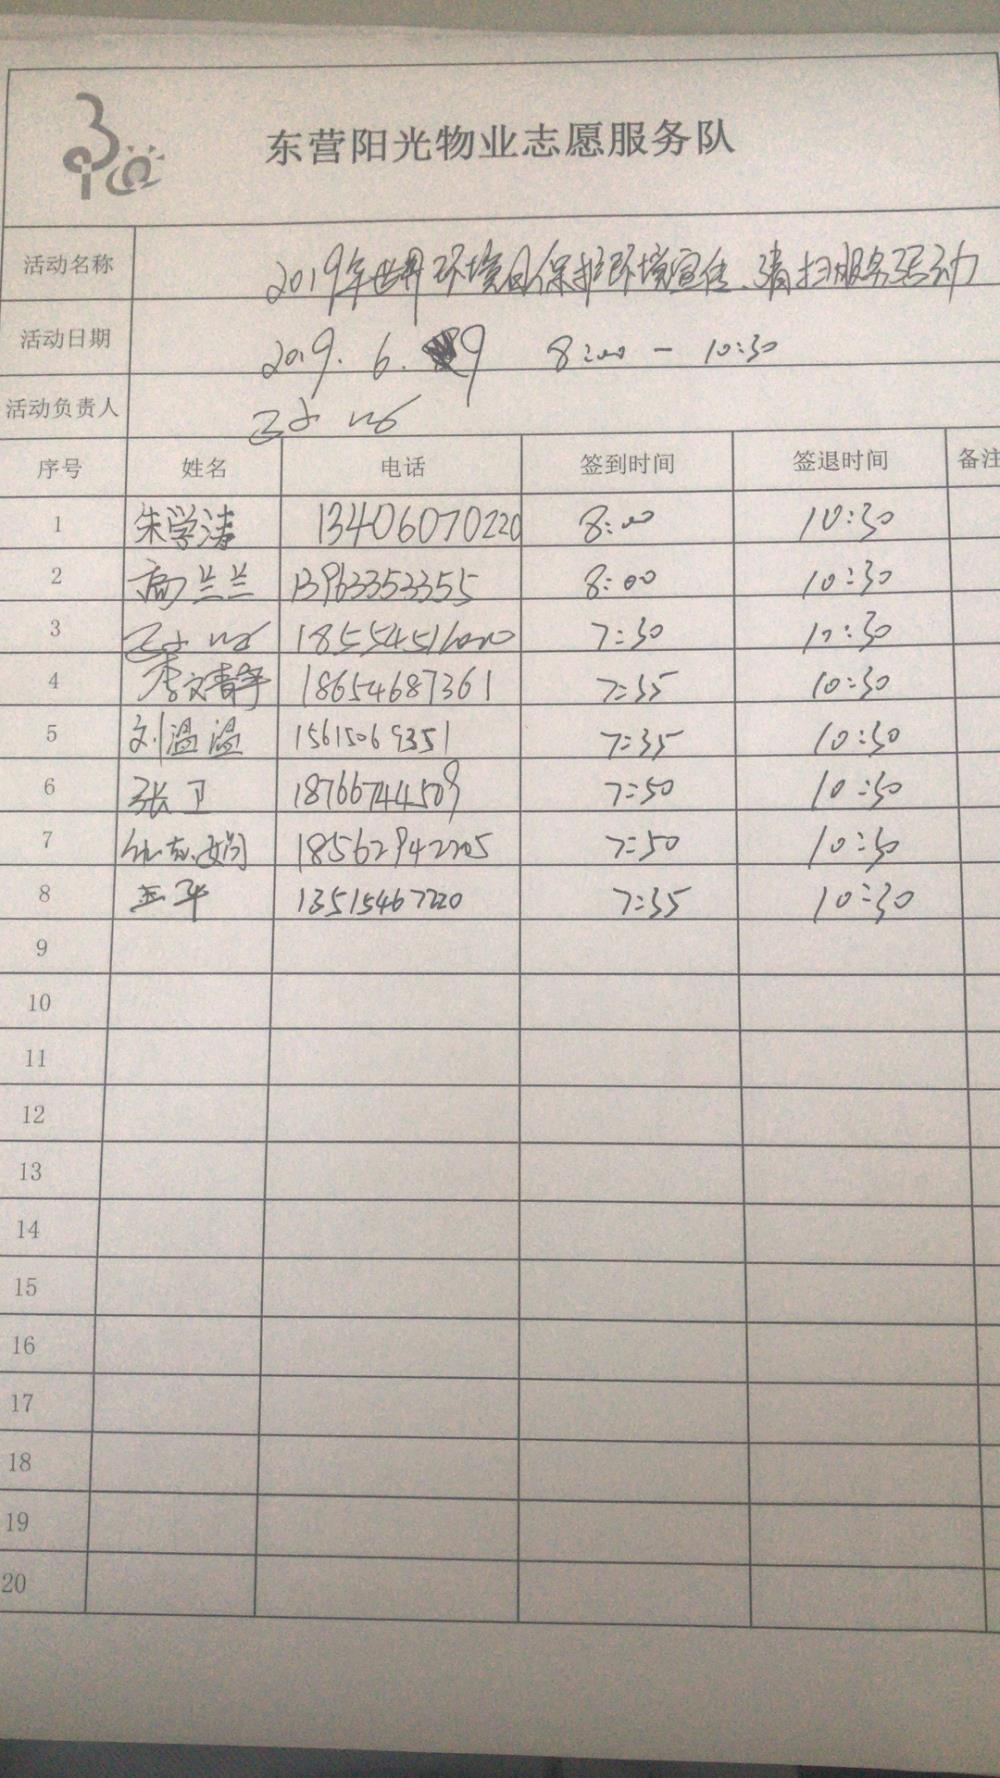 东营阳光物业志愿服务队
活动名称 2019年世界环境日保护环境宣传、清扫服务活动
活动日期 2019.6.9 8:00-10:30
活动负责人
序号 姓名 电话 签到时间 签退时间 备注
1 朱学涛 13406070220 8:00 10:30
2 高兰兰 13963353355 8:00 10:30
3 7:30 10:30
4 李文静 18654687361 7:35 10:30
5 刘温温 15615069351 7:35 10:30
6 张卫 18766744509 7:50 10:30
7 18562942205 7:50 10:30
8 13515467220 7:35 10:30
9
10
11
12
13
14
15
16
17
18
19
20